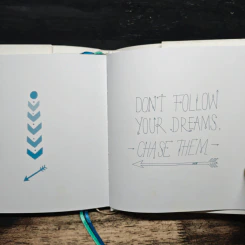 DON'T FOLLOW
YOUR DREAMS.
- CHASE THEM -